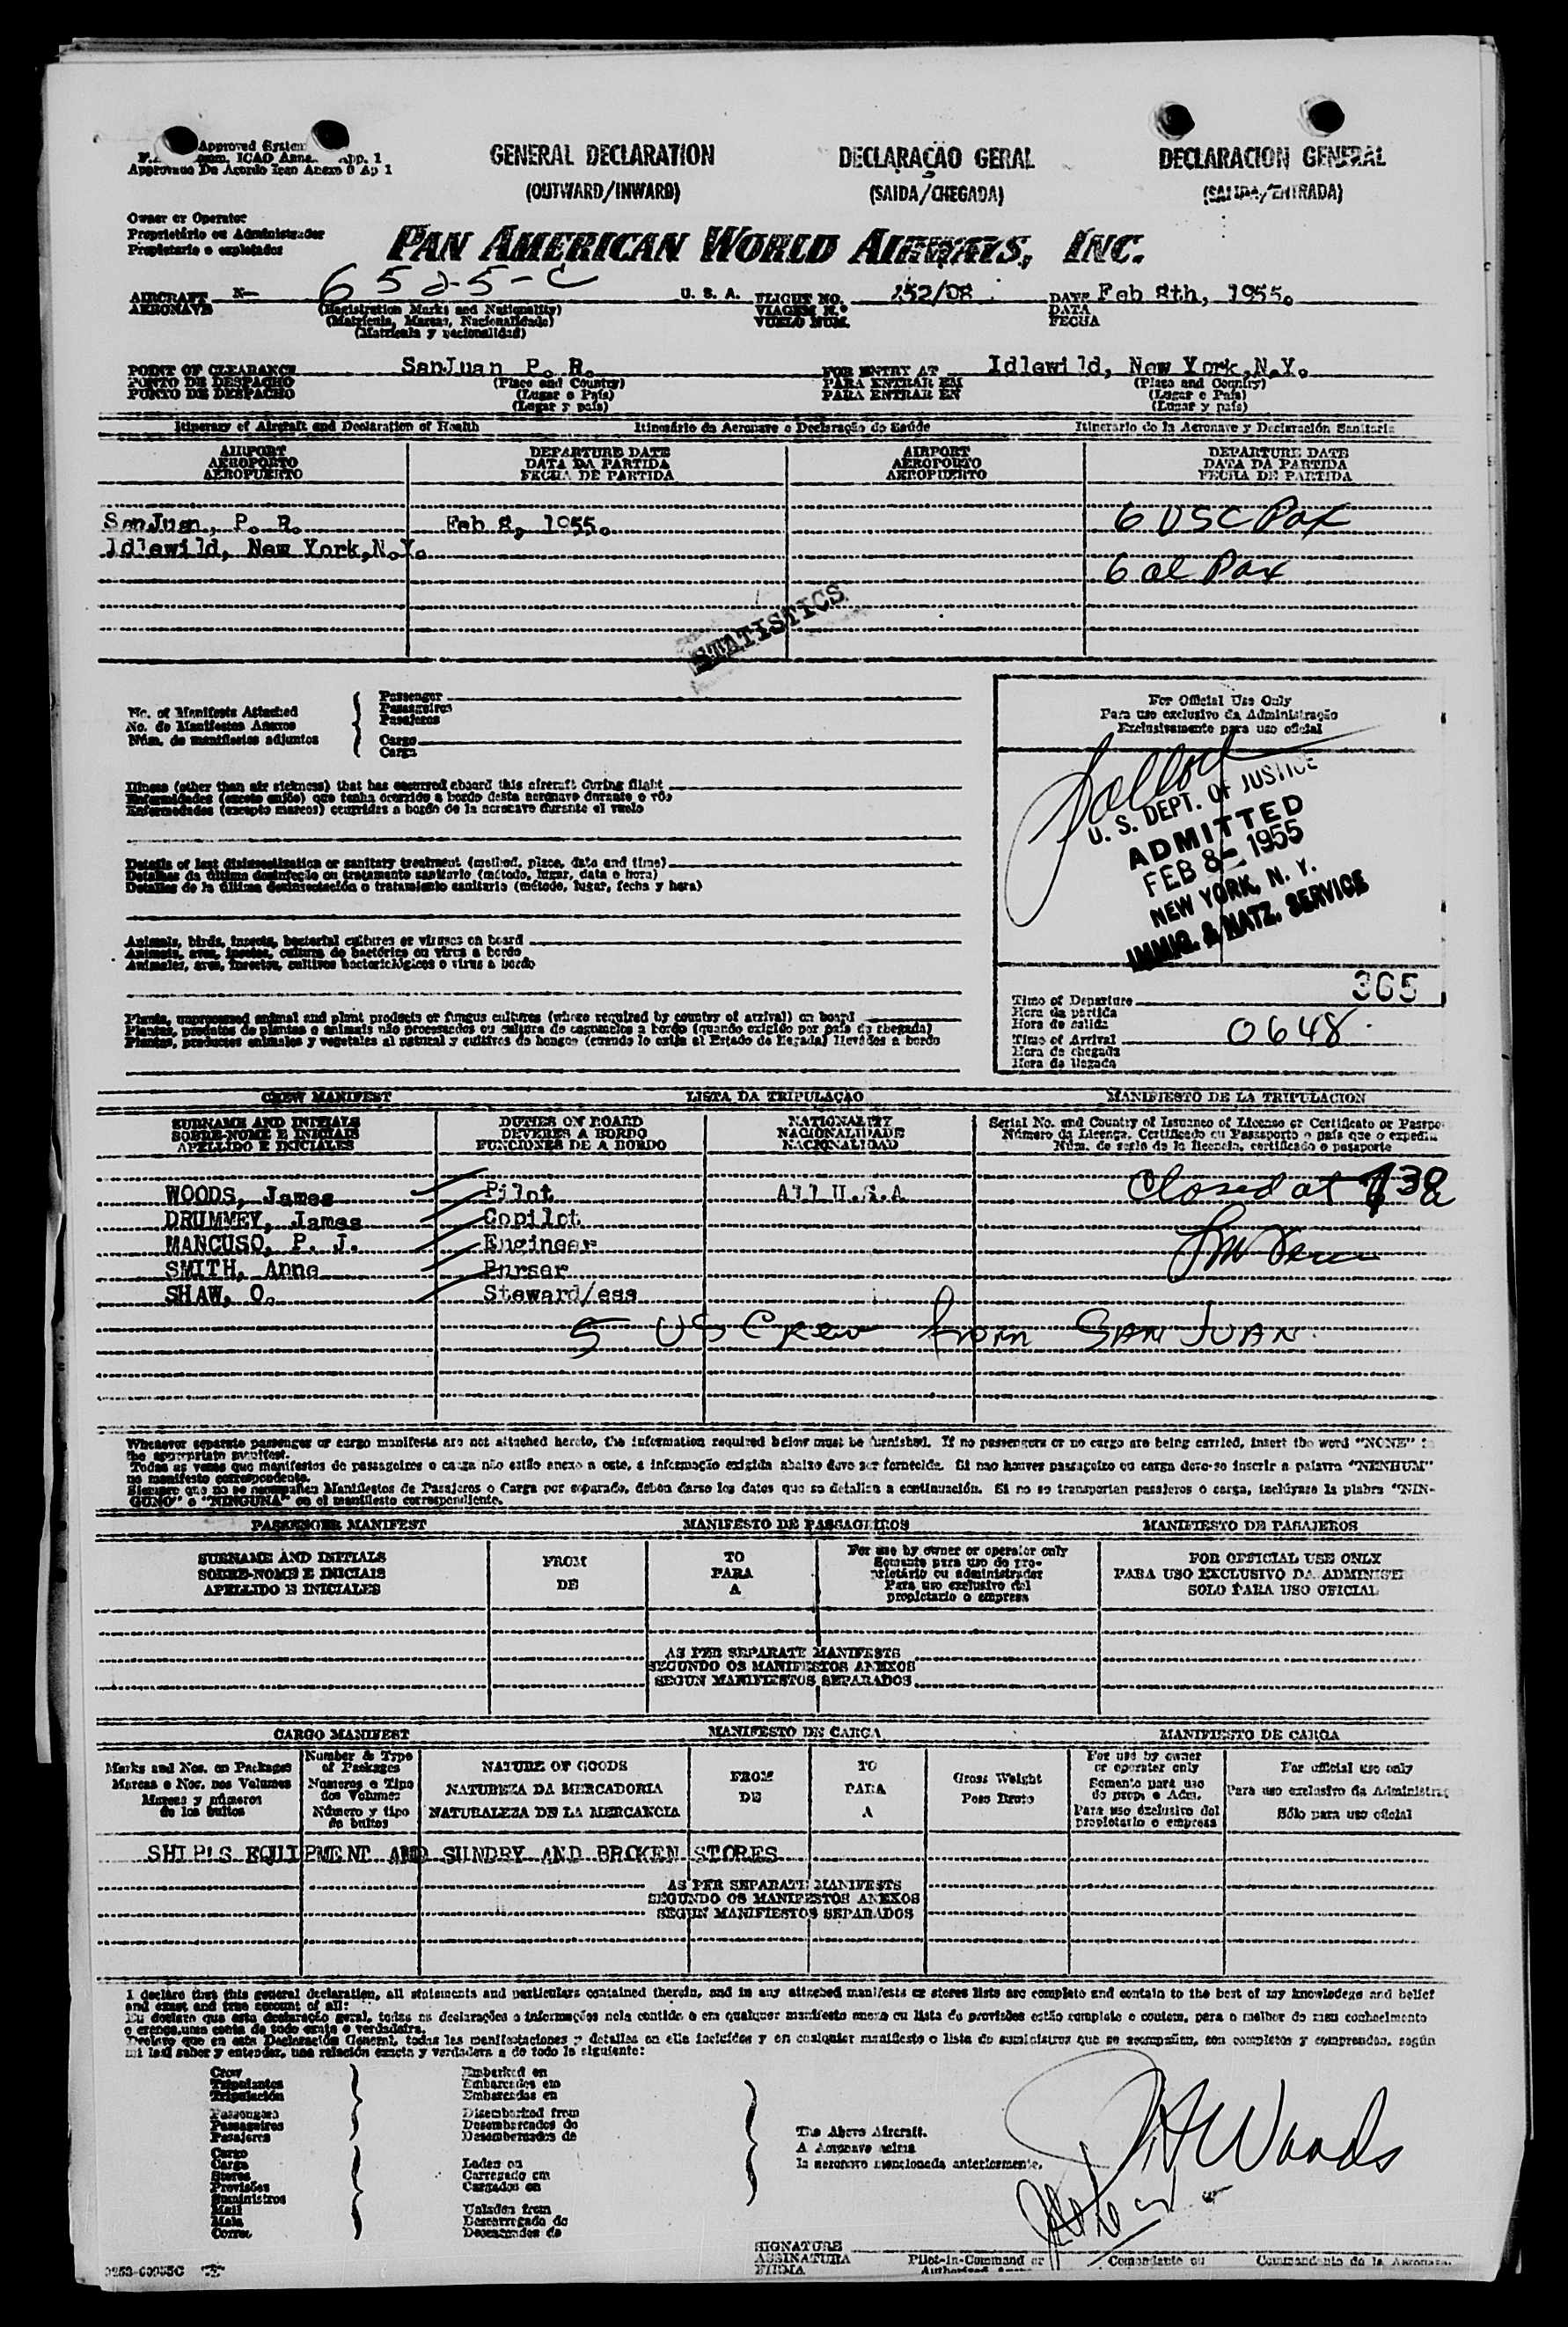 Approved System
App. 1
Approvado De Acordo Icao Anexo 9 Ap 1
GENERAL DECLARATION
(OUTWARD/INWARD)
DECLARAÇÃO GERAL
(SAIDA/CHEGADA)
DECLARACION GENERAL
(SALIDA/ENTRADA)
Owner or Operator
Proprietário ou Administrador
Propietario o explotador
PAN AMERICAN WORLD AIRWAYS, INC.
AIRCRAFT N- 6525-C U. S. A. FLIGHT NO. 252/08 DATE Feb 8th, 1955.
AERONAVE (Registration Marks and Nationality) VIAGEM N.º DATA
(Matrícula, Marcas, Nacionalidade) VUELO NUM. FECHA
(Matrícula y nacionalidad)
POINT OF CLEARANCE SanJuan P. R. FOR ENTRY AT Idlewild, New York,N.Y.
PONTO DE DESPACHO (Place and Country) PARA ENTRAR EM (Place and Country)
PUNTO DE DESPACHO (Lugar e País) PARA ENTRAR EN (Lugar e País)
(Lugar y país) (Lugar y país)
Itinerary of Aircraft and Declaration of Health Itinerário da Aeronave e Declaração de Saúde Itinerario de la Aeronave y Declaración Sanitaria
AIRPORT DEPARTURE DATE AIRPORT DEPARTURE DATE
AEROPORTO DATA DA PARTIDA AEROPORTO DATA DA PARTIDA
AEROPUERTO FECHA DE PARTIDA AEROPUERTO FECHA DE PARTIDA
SanJuan, P. R. Feb 8, 1955. 6 USC Pax
Idlewild, New York,N.Y.
6 al Pax
STATISTICS
No. of Manifests Attached
No. de Manifestos Anexos
Núm. de manifiestos adjuntos
Passenger
Passageiros
Pasajeros
Cargo
Carga
For Official Use Only
Para uso exclusivo da Administração
Exclusivamente para uso oficial
U. S. DEPT. OF JUSTICE
ADMITTED
FEB 8- 1955
NEW YORK, N. Y.
IMMIG. & NATZ. SERVICE
Illness (other than air sickness) that has occurred aboard this aircraft during flight
Enfermidades (exceto enjôo) que tenha ocorrido a bordo desta aeronave durante o vôo
Enfermedades (excepto mareos) ocurridas a bordo de la aeronave durante el vuelo
Details of last disinsectization or sanitary treatment (method, place, date and time)
Detalhes da última desinfeção ou tratamento sanitario (método, lugar, data e hora)
Detalles de la última desinsectación o tratamiento sanitario (método, lugar, fecha y hora)
Animals, birds, insects, bacterial cultures or viruses on board
Animais, aves, insetos, cultura de bactérias ou virus a bordo
Animales, aves, insectos, cultivos bacteriológicos o virus a bordo
Plants, unprocessed animal and plant products or fungus cultures (where required by country of arrival) on board
Plantas, produtos de plantas e animais não processados ou cultura de cogumelos a bordo (quando exigido por país da chegada)
Plantas, productos animales y vegetales al natural y cultivos de hongos (cuando lo exija el Estado de llegada) llevados a bordo
365
Time of Departure
Hora da partida
Hora de salida
Time of Arrival 0648
Hora de chegada
Hora de llegada
CREW MANIFEST LISTA DA TRIPULAÇÃO MANIFIESTO DE LA TRIPULACION
SURNAME AND INITIALS DUTIES ON BOARD NATIONALITY Serial No. and Country of Issuance of License or Certificate or Passpo
SOBRE-NOME E INICIAIS DEVERES A BORDO NACIONALIDADE Número da Licença, Certificado ou Passaporto e país que o expediu
APELLIDO E INICIALES FUNCIONES DE A BORDO NACIONALIDAD Núm. de serie de la licencia, certificado o pasaporte
WOODS, James Pilot All U.S.A Closed at 730a
DRUMMEY, James Copilot
MANCUSO, P. J. Engineer
SMITH, Anne Purser
SHAW, O. Steward/ess
5 US Crew from SAN JUAN
Whenever separate passenger or cargo manifests are not attached hereto, the information required below must be furnished. If no passengers or no cargo are being carried, insert the word "NONE" in
the appropriate manifest.
Todas as vezes que manifestos de passageiros o carga não estão anexo a este, a informação exigida abaixo deve ser fornecida. Si nao houver passageiro ou carga deve-se inserir a palavra "NENHUM"
no manifesto correspondente.
Siempre que no se acompañen Manifiestos de Pasajeros o Carga por separado, deben darse los datos que se detallan a continuación. Si no se transportan pasajeros o carga, inclúyase la plabra "NIN-
GUNO" o "NINGUNA" en el manifiesto correspondiente.
PASSENGER MANIFEST MANIFESTO DE PASSAGEIROS MANIFIESTO DE PASAJEROS
SURNAME AND INITIALS
SOBRE-NOME E INICIAIS
APELLIDO E INICIALES
FROM
DE
TO
PARA
A
For use by owner or operator only
Somente para uso do pro-
prietário ou administrador
Para uso exclusivo del
propietario o empresa
FOR OFFICIAL USE ONLY
PARA USO EXCLUSIVO DA ADMINIST
SOLO PARA USO OFICIAL
AS PER SEPARATE MANIFESTS
SEGUNDO OS MANIFESTOS ANEXOS
SEGUN MANIFIESTOS SEPARADOS
CARGO MANIFEST MANIFESTO DE CARGA MANIFIESTO DE CARGA
Marks and Nos. on Packages
Marcas e Nos. nos Volumes
Marcas y números
de los bultos
Number & Type
of Packages
Numeros e Tipo
dos Volumes
Número y tipo
de bultos
NATURE OF GOODS
NATUREZA DA MERCADORIA
NATURALEZA DE LA MERCANCIA
FROM
DE
TO
PARA
A
Gross Weight
Peso Bruto
For use by owner
or operator only
Somente para uso
do prop. e Adm.
Para uso exclusivo del
propietario o empresa
For official use only
Para uso exclusivo da Administraç
Sólo para uso oficial
SHIP'S EQUIPMENT AND SUNDRY AND BROKEN STORES
AS PER SEPARATE MANIFESTS
SEGUNDO OS MANIFESTOS ANEXOS
SEGUN MANIFIESTOS SEPARADOS
I declare that this general declaration, all statements and particulars contained therein, and in any attached manifests or stores lists are complete and contain to the best of my knowledege and belief
and exact and true account of all:
Eu declaro que esta declaração geral, todas as declarações e informações nela contida e em qualquer manifesto anexo ou lista de provisões estão completo e contem, para o melhor do meu conhecimento
e crença, uma conta de todo exata e verdadeira.
Declaro que en esta Declaración General, todas las manifestaciones y detalles en ella incluídos y en cualquier manifiesto o lista de suministros que se acompañen, son completos y comprenden, según
mi leal saber y entender, una relación exacta y verdadera a de todo lo siguiente:
Crew
Tripulantes
Tripulación
Passengers
Passageiros
Pasajeros
Cargo
Carga
Stores
Provisões
Suministros
Mail
Mala
Correo
Embarked on
Embarcados em
Embarcados en
Disembarked from
Desembarcados do
Desembarcados de
Laden on
Carregado em
Cargados en
Unladen from
Descarregado do
Descargados de
The Above Aircraft.
A Aeronave acima
la aeronave mencionada anteriormente.
J.H Woods
SIGNATURE
ASSINATURA
FIRMA
Pilot-in-Command or Comandante ou Commandante de la Aeronave.